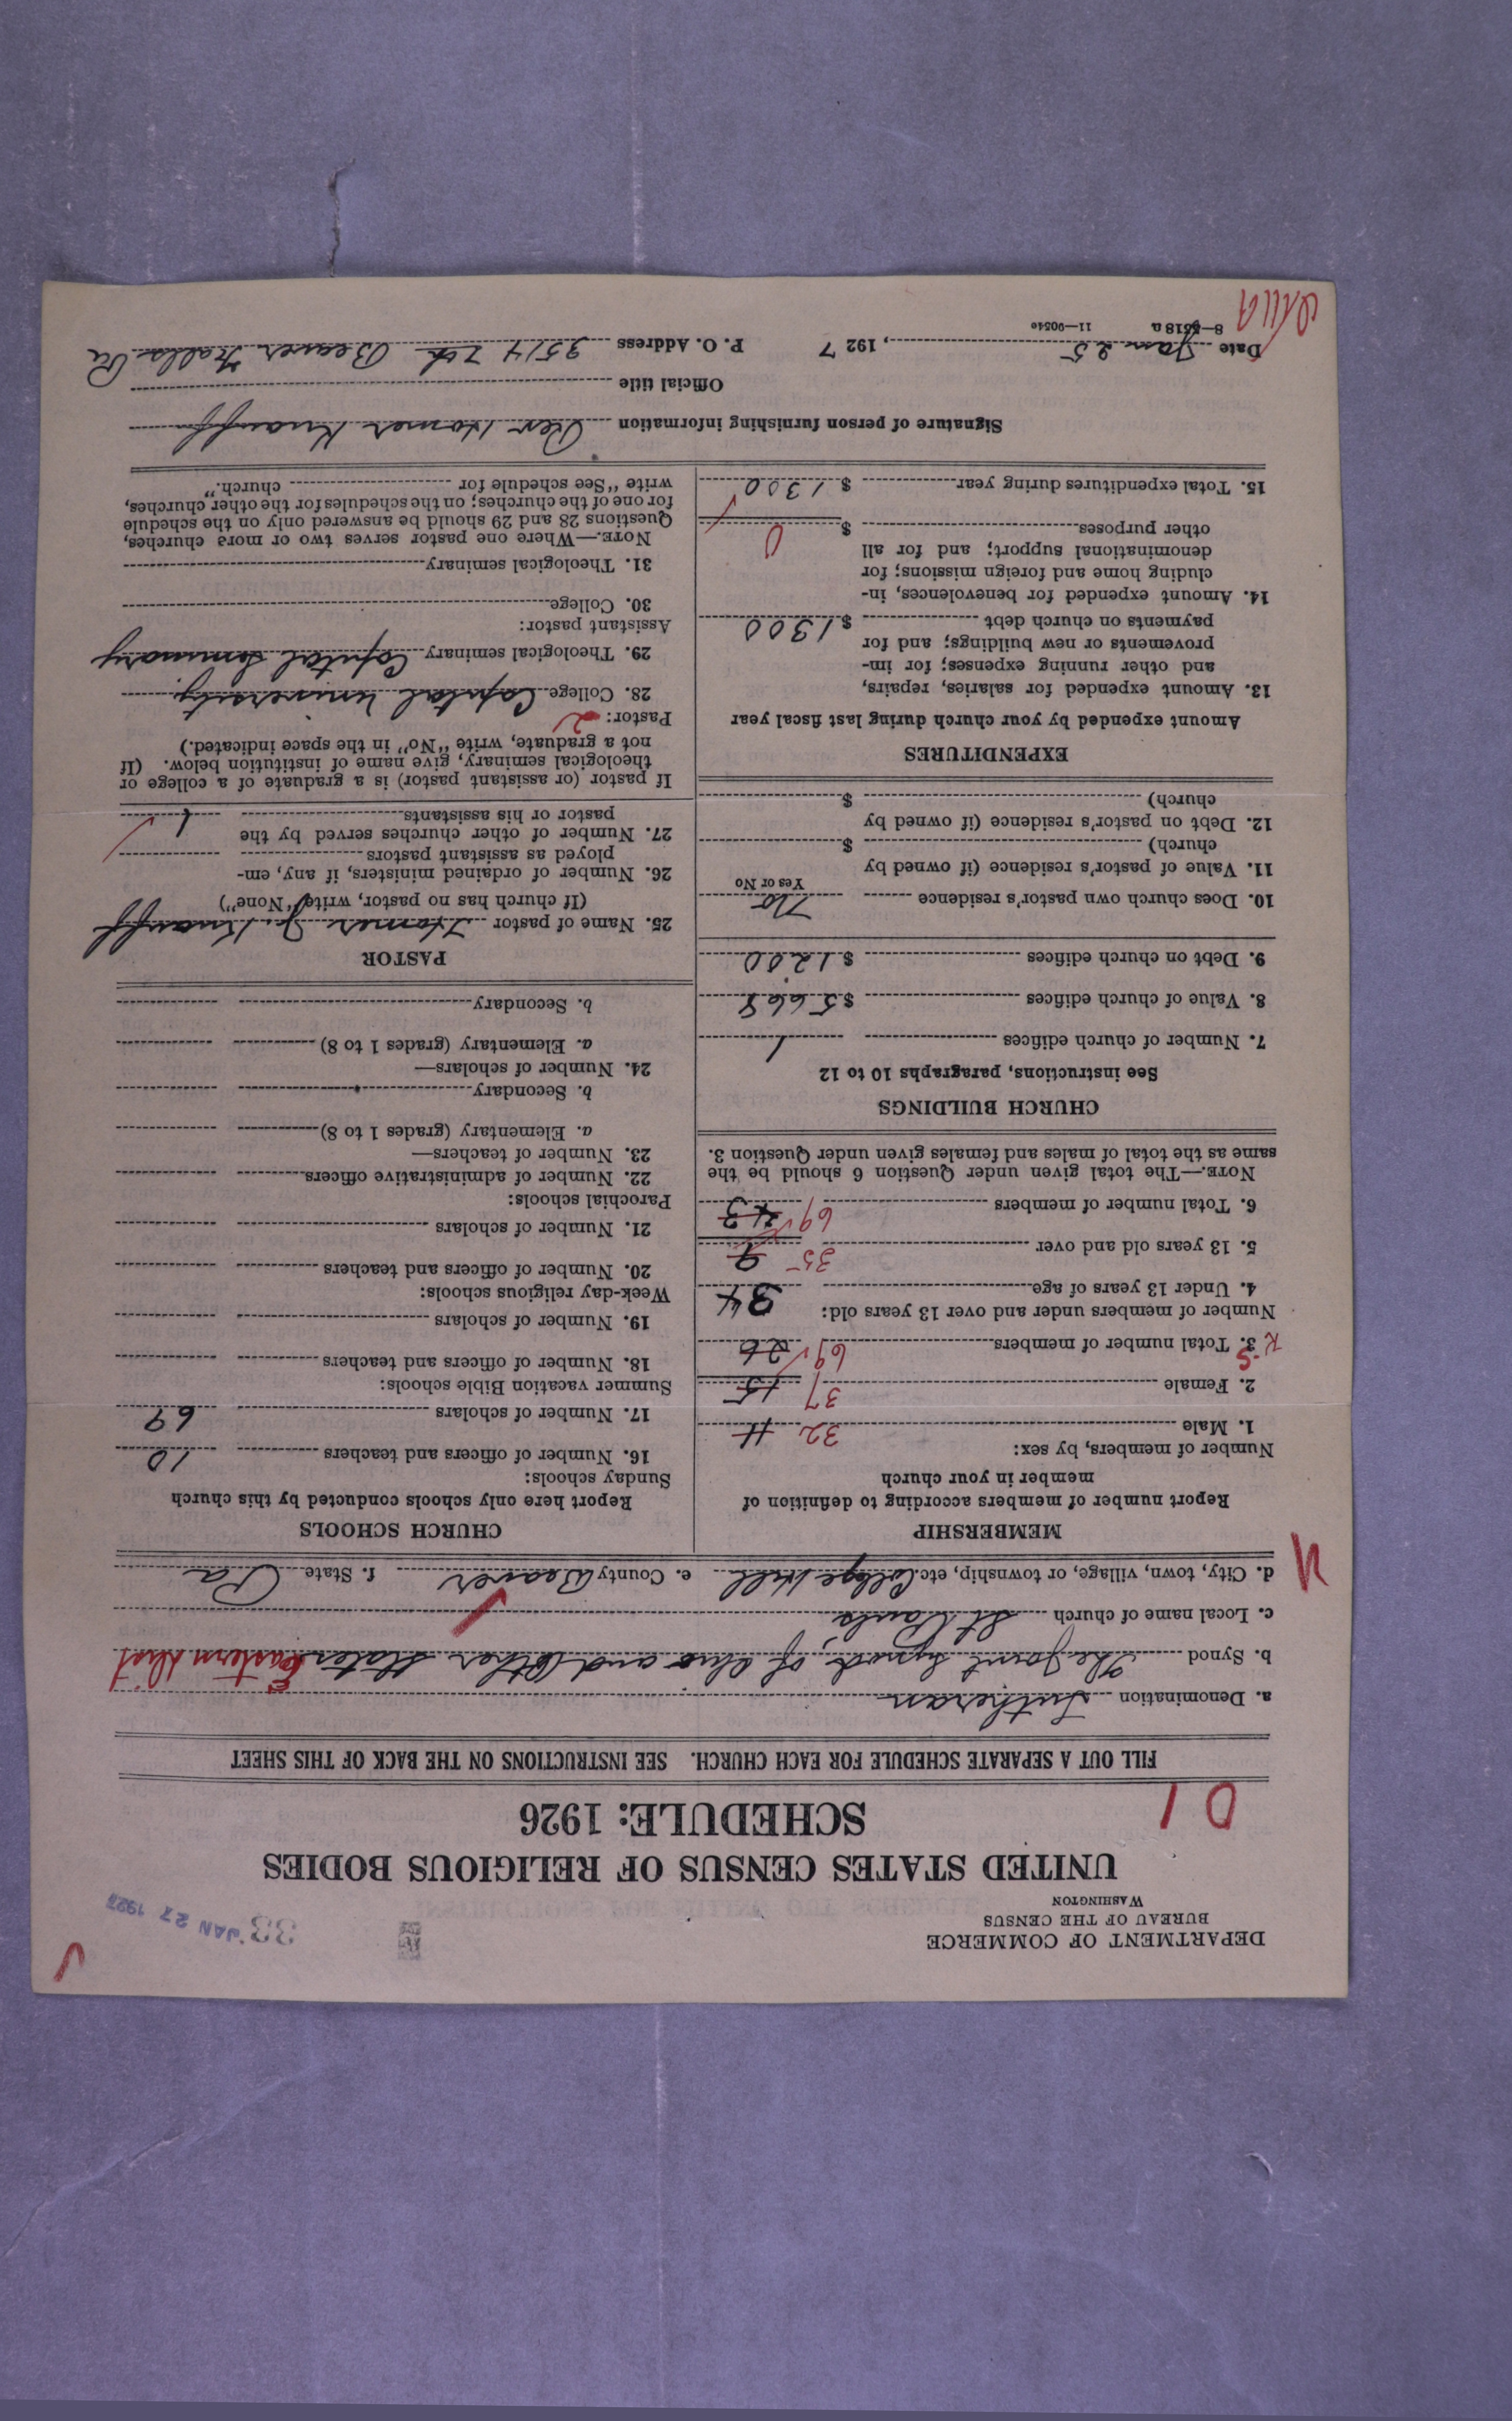 DEPARTMENT OF COMMERCE
BUREAU OF THE CENSUS
WASHINGTON
33
JAN 27 1927
UNITED STATES CENSUS OF RELIGIOUS BODIES
SCHEDULE: 1926
01
FILL OUT A SEPARATE SCHEDULE FOR EACH CHURCH. SEE INSTRUCTIONS ON THE BACK OF THIS SHEET
a. Denomination Lutheran
b. Synod The Joint Synod of Ohio and Other States Eastern Dist
c. Local name of church St Pauls
d. City, town, village, or township, etc. College Hill e. County Beaver f. State Pa
MEMBERSHIP
Report number of members according to definition of
member in your church
Number of members, by sex:
1. Male 32 11
2. Female 37 15
3. Total number of members 69 26
Number of members under and over 13 years old:
4. Under 13 years of age 34
5. 13 years old and over 35 9
6. Total number of members 69 43
NOTE.—The total given under Question 6 should be the
same as the total of males and females given under Question 3.
CHURCH BUILDINGS
See instructions, paragraphs 10 to 12
7. Number of church edifices 1
8. Value of church edifices $ 5668
9. Debt on church edifices $ 1200
10. Does church own pastor's residence No
Yes or No
11. Value of pastor's residence (if owned by
church) $
12. Debt on pastor's residence (if owned by
church) $
EXPENDITURES
Amount expended by your church during last fiscal year
13. Amount expended for salaries, repairs,
and other running expenses; for im-
provements or new buildings; and for
payments on church debt $ 1300
14. Amount expended for benevolences, in-
cluding home and foreign missions; for
denominational support; and for all
other purposes $ 0
15. Total expenditures during year $ 1300
CHURCH SCHOOLS
Report here only schools conducted by this church
Sunday schools:
16. Number of officers and teachers 10
17. Number of scholars 69
Summer vacation Bible schools:
18. Number of officers and teachers
19. Number of scholars
Week-day religious schools:
20. Number of officers and teachers
21. Number of scholars
Parochial schools:
22. Number of administrative officers
23. Number of teachers—
a. Elementary (grades 1 to 8)
b. Secondary
24. Number of scholars—
a. Elementary (grades 1 to 8)
b. Secondary
PASTOR
25. Name of pastor Homer J. Knauff
(If church has no pastor, write "None")
26. Number of ordained ministers, if any, em-
ployed as assistant pastors
27. Number of other churches served by the
pastor or his assistants 1
If pastor (or assistant pastor) is a graduate of a college or
theological seminary, give name of institution below. (If
not a graduate, write "No" in the space indicated.)
Pastor: 2
28. College Capital University
29. Theological seminary Capital Seminary
Assistant pastor:
30. College
31. Theological seminary
NOTE.—Where one pastor serves two or more churches,
Questions 28 and 29 should be answered only on the schedule
for one of the churches; on the schedules for the other churches,
write "See schedule for church."
Signature of person furnishing information Rev Homer Knauff
Official title
Date Jan 25, 1927 P. O. Address 3514 7th Beaver Falls Pa
8—5518 a 11—9054e